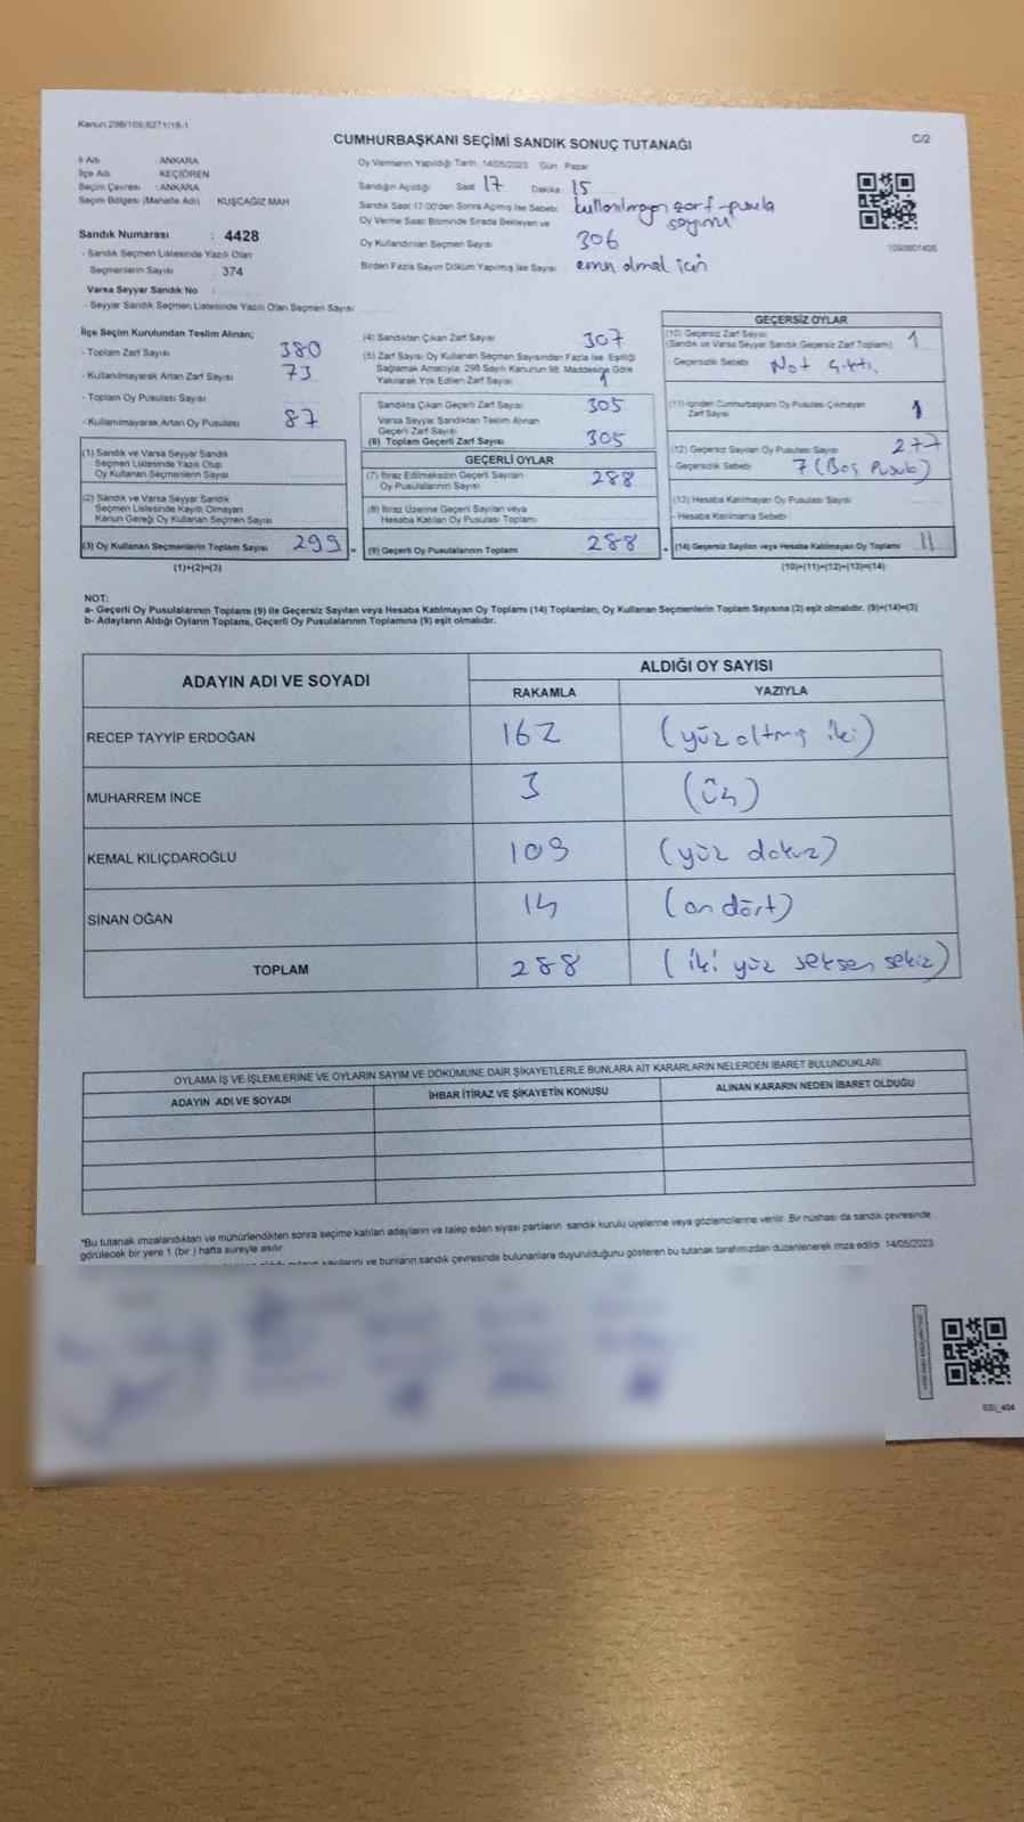 Kanun 298/105,6271/18-1
CUMHURBAŞKANI SEÇİMİ SANDIK SONUÇ TUTANAĞI
C/2
İl Adı : ANKARA
İlçe Adı : KEÇİÖREN
Seçim Çevresi : ANKARA
Seçim Bölgesi (Mahalle Adı) KUŞCAĞIZ MAH
Sandık Numarası : 4428
- Sandık Seçmen Listesinde Yazılı Olan
Seçmenlerin Sayısı 374
Varsa Seyyar Sandık No
- Seyyar Sandık Seçmen Listesinde Yazılı Olan Seçmen Sayısı
Oy Vermenin Yapıldığı Tarih 14/05/2023 Gün Pazar
Sandığın Açıldığı Saat 17 Dakika 15
Sandık Saat 17:00'den Sonra Açılmış İse Sebebi kullanılmayan zarf-pusula
sayımı
Oy Verme Saati Bitiminde Sırada Bekleyen ve
Oy Kullandırılan Seçmen Sayısı 306
Birden Fazla Sayım Döküm Yapılmış İse Sayısı emin olmak için
İlçe Seçim Kurulundan Teslim Alınan;
- Toplam Zarf Sayısı 380
- Kullanılmayarak Artan Zarf Sayısı 73
- Toplam Oy Pusulası Sayısı
- Kullanılmayarak Artan Oy Pusulası 87
(1) Sandık ve Varsa Seyyar Sandık
Seçmen Listesinde Yazılı Olup
Oy Kullanan Seçmenlerin Sayısı
(2) Sandık ve Varsa Seyyar Sandık
Seçmen Listesinde Kayıtlı Olmayan
Kanun Gereği Oy Kullanan Seçmen Sayısı
(3) Oy Kullanan Seçmenlerin Toplam Sayısı 299
(1)+(2)=(3)
(4) Sandıktan Çıkan Zarf Sayısı 307
(5) Zarf Sayısı Oy Kullanan Seçmen Sayısından Fazla İse Eşitliği
Sağlamak Amacıyla, 298 Sayılı Kanunun 98. Maddesine Göre
Yakılarak Yok Edilen Zarf Sayısı 1
Sandıkta Çıkan Geçerli Zarf Sayısı 305
Varsa Seyyar Sandıktan Teslim Alınan
Geçerli Zarf Sayısı
(6) Toplam Geçerli Zarf Sayısı 305
GEÇERLİ OYLAR
(7) İtiraz Edilmeksizin Geçerli Sayılan
Oy Pusulalarının Sayısı 288
(8) İtiraz Üzerine Geçerli Sayılan veya
Hesaba Katılan Oy Pusulası Toplamı
(9) Geçerli Oy Pusulalarının Toplamı 288
GEÇERSİZ OYLAR
(10) Geçersiz Zarf Sayısı
(Sandık ve Varsa Seyyar Sandık Geçersiz Zarf Toplamı) 1
- Geçersizlik Sebebi Not çıktı.
(11) İçinden Cumhurbaşkanı Oy Pusulası Çıkmayan
Zarf Sayısı 1
(12) Geçersiz Sayılan Oy Pusulası Sayısı
- Geçersizlik Sebebi 7 (Boş Pusula)
(13) Hesaba Katılmayan Oy Pusulası Sayısı
- Hesaba Katılmama Sebebi
(14) Geçersiz Sayılan veya Hesaba Katılmayan Oy Toplamı 11
(10)+(11)+(12)+(13)=(14)
NOT:
a- Geçerli Oy Pusulalarının Toplamı (9) ile Geçersiz Sayılan veya Hesaba Katılmayan Oy Toplamı (14) Toplamları, Oy Kullanan Seçmenlerin Toplam Sayısına (3) eşit olmalıdır. (9)+(14)=(3)
b- Adayların Aldığı Oyların Toplamı, Geçerli Oy Pusulalarının Toplamına (9) eşit olmalıdır.
ADAYIN ADI VE SOYADI ALDIĞI OY SAYISI
RAKAMLA YAZIYLA
RECEP TAYYİP ERDOĞAN 162 (yüz altmış iki)
MUHARREM İNCE 3 (üç)
KEMAL KILIÇDAROĞLU 109 (yüz dokuz)
SİNAN OĞAN 14 (on dört)
TOPLAM 288 (iki yüz seksen sekiz)
OYLAMA İŞ VE İŞLEMLERİNE VE OYLARIN SAYIM VE DÖKÜMÜNE DAİR ŞİKAYETLERLE BUNLARA AİT KARARLARIN NELERDEN İBARET BULUNDUKLARI
ADAYIN ADI VE SOYADI İHBAR İTİRAZ VE ŞİKAYETİN KONUSU ALINAN KARARIN NEDEN İBARET OLDUĞU
"Bu tutanak imzalandıktan ve mühürlendikten sonra seçime katılan adayların ve talep eden siyasi partilerin sandık kurulu üyelerine veya gözlemcilerine verilir. Bir nüshası da sandık çevresinde
görülecek bir yere 1 (bir ) hafta süreyle asılır
sayılarını ve bunların sandık çevresinde bulunanlara duyurulduğunu gösteren bu tutanak tarafımızdan düzenlenerek imza edildi. 14/05/2023